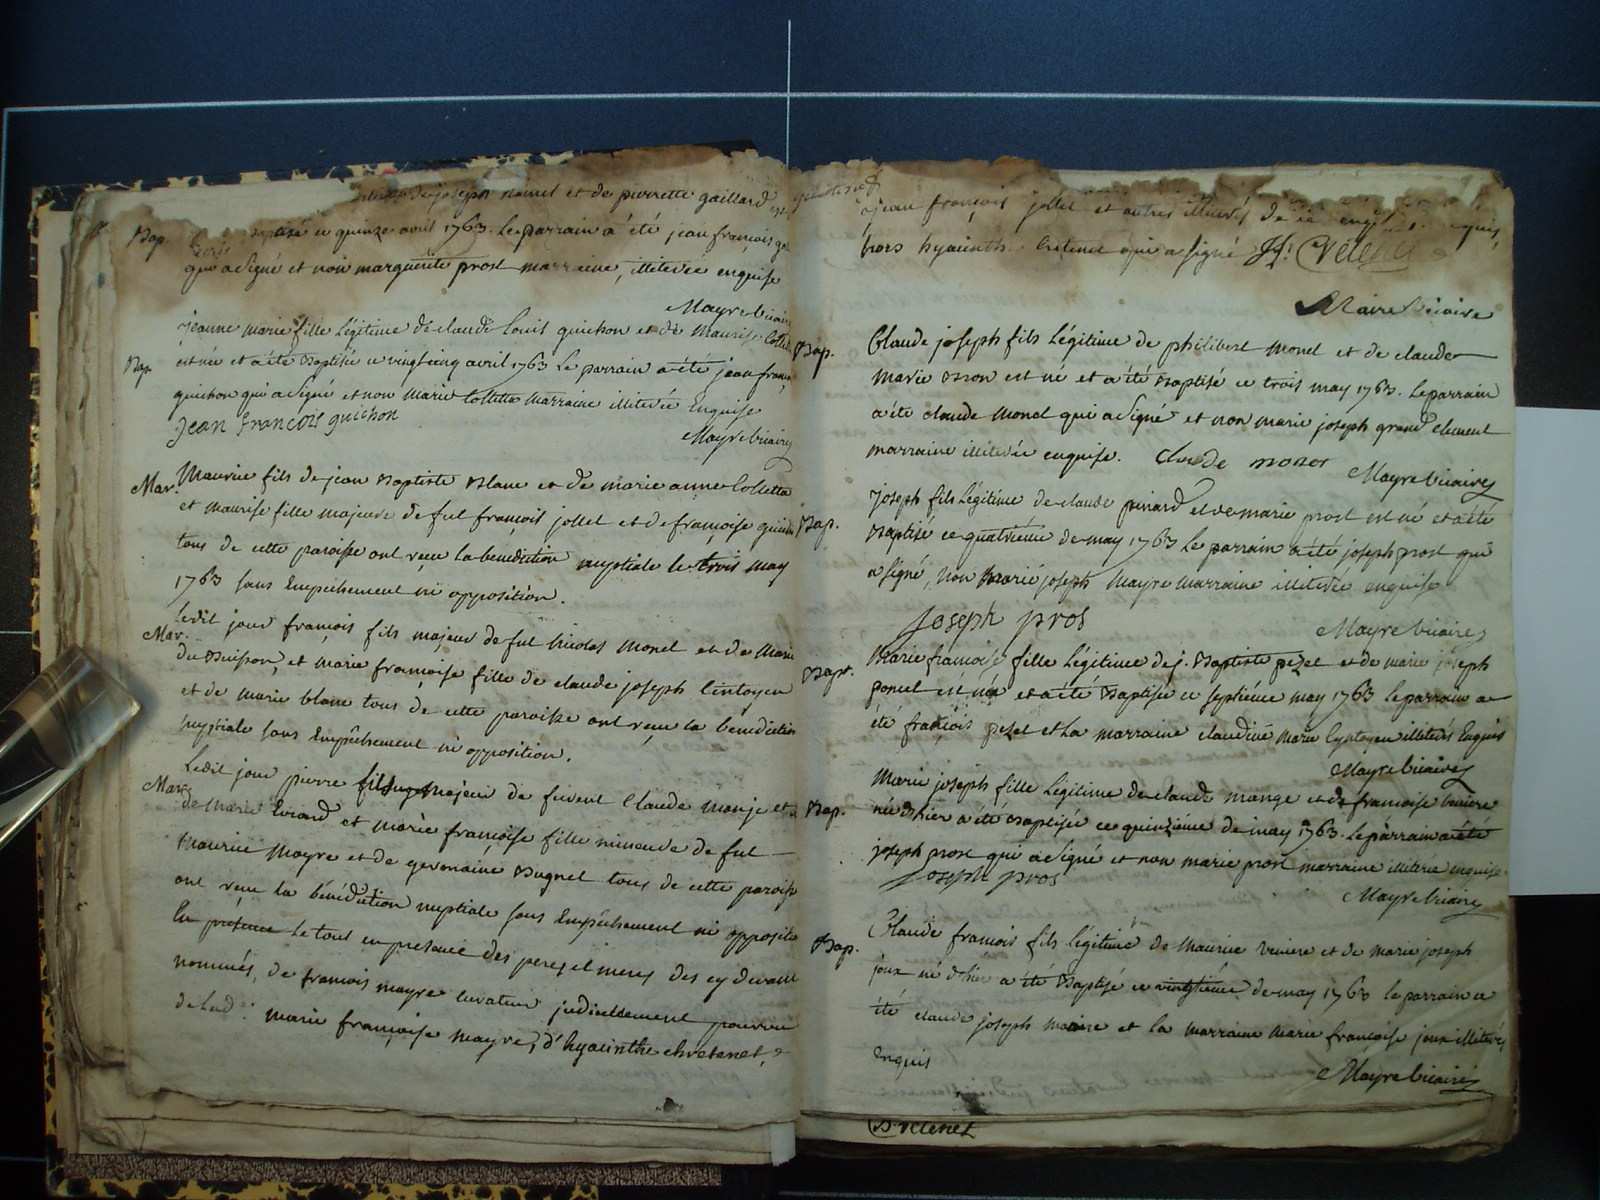 de joseph monel et de pierrette gaillard
Bap. baptisé ce quinze avril 1763. Le parrain a été jean françois
qui a signé et non marguerite prost marraine, illiterée enquise
Mayre vicaire
jeanne marie fille légitime de claude Louis guichon et de Maurise Collet
Bap. est née et a été Baptisée ce vingt cinq avril 1763 Le parrain a été jean françois
guichon qui a signé et non Marie Collette Marraine illiterée Enquise
Jean François guichon
Mayre vicaire
Mar. Maurice fils de jean Baptiste Blanc et de marie anne Collette
et maurise fille majeure de fut françois jollet et de françoise
tous de cette paroisse ont reçu la benediction nuptiale le trois may
1763 sans Empechement ni opposition.
Mar. Ledit jour françois fils majeur de fut Nicolas Monel et de Marie
du Buisson, et marie françoise fille de claude joseph Lintoyen
et de marie blanc tous de cette paroisse ont reçu la bénédiction
nuptiale sans Empêchement ni opposition.
Mar. Ledit jour pierre fils majeur de furent Claude monje et
de marie Evrard et marie françoise fille mineure de fut
Maurice Mayre et de germaine Bugnet tous de cette paroisse
ont reçu la bénédiction nuptiale sans Empêchement ni opposition
En présence Le tout en presence des peres et meres des cy devant
nommés, de francois mayre curateur judiciellement pourvu
de lad: marie françoise mayre, d'hyacinthe chretenet,
jean françois jollet et autres illiterés de ce
hors hyacinthe Cretenet qui a signé H: Cretenet
Maire vicaire
Bap. Claude joseph fils Légitime de philibert Monel et de claude
Marie Bron est né et a été Baptisé ce trois may 1763. Le parrain
a été claude Monel qui a signé et non marie joseph grand clement
marraine illiterée enquise. Claude monot Mayre vicaire
Bap. joseph fils Légitime de claude pinard et de marie prost est né et a été
Baptisé ce quatrième de may 1763 Le parrain a été joseph prost qui
a signé, non Marie joseph Mayre marraine illiterée enquise
Joseph pros
Mayre vicaire
Bapt. Marie francoise fille Légitime de j. Baptiste pezet et de marie joseph
poncet est née et a été Baptisée ce septième may 1763 Le parrain a
été françois pezet et La marraine claudine marie Lyntoyen illiterés Enquis
Mayre vicaire
Bap. Marie joseph fille Légitime de claude mange et de francoise
née d'hier a été Baptisée ce quinzième de may 1763. Le parrain a été
joseph prost qui a signé et non marie prost marraine illiterée enquise
Joseph pros
Mayre vicaire
Bap. Claude francois fils légitime de Maurice et de marie joseph
joux né d'hier a été Baptisé ce vingtième de may 1763 le parrain a
été claude joseph maire et la marraine marie françoise joux illiterés
Enquis
Mayre vicaire
Cretenet